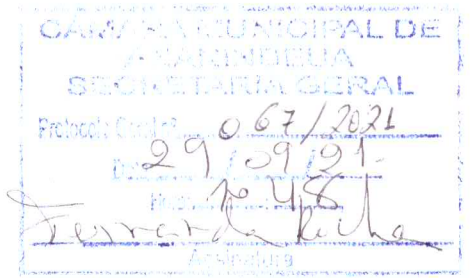 CÂMARA MUNICIPAL DE
ANANINDEUA
SECRETARIA GERAL
Protocolo Geral nº 067/2021
Data 29/09/21
10 48
Fernanda Rocha
Assinatura